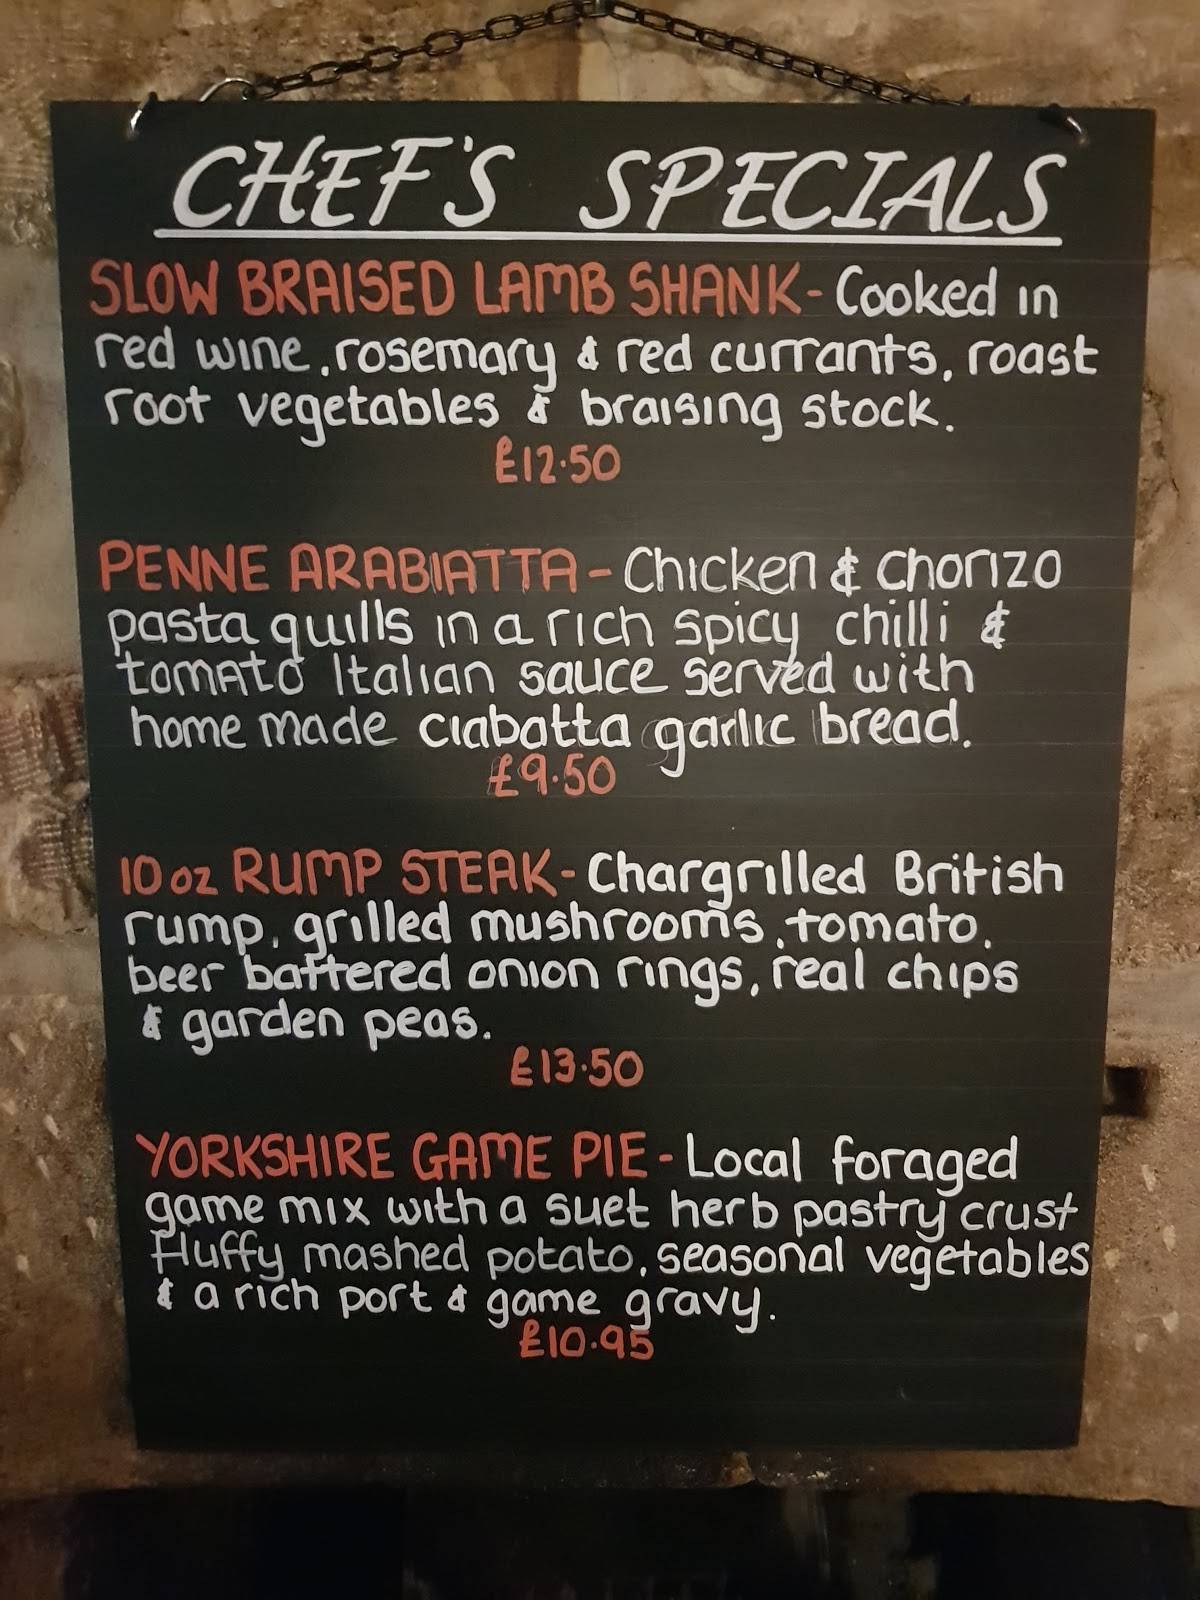 CHEF'S SPECIALS
SLOW BRAISED LAMB SHANK - Cooked in
red wine, rosemary & red currants, roast
root vegetables & braising stock.
£12.50
PENNE ARABIATTA - Chicken & chorizo
pasta quills in a rich spicy chilli &
tomato Italian sauce served with
home made ciabatta garlic bread.
£9.50
10 oz RUMP STEAK - Chargrilled British
rump, grilled mushrooms, tomato,
beer battered onion rings, real chips
& garden peas.
£13.50
YORKSHIRE GAME PIE - Local foraged
game mix with a suet herb pastry crust
fluffy mashed potato, seasonal vegetables
& a rich port & game gravy.
£10.95